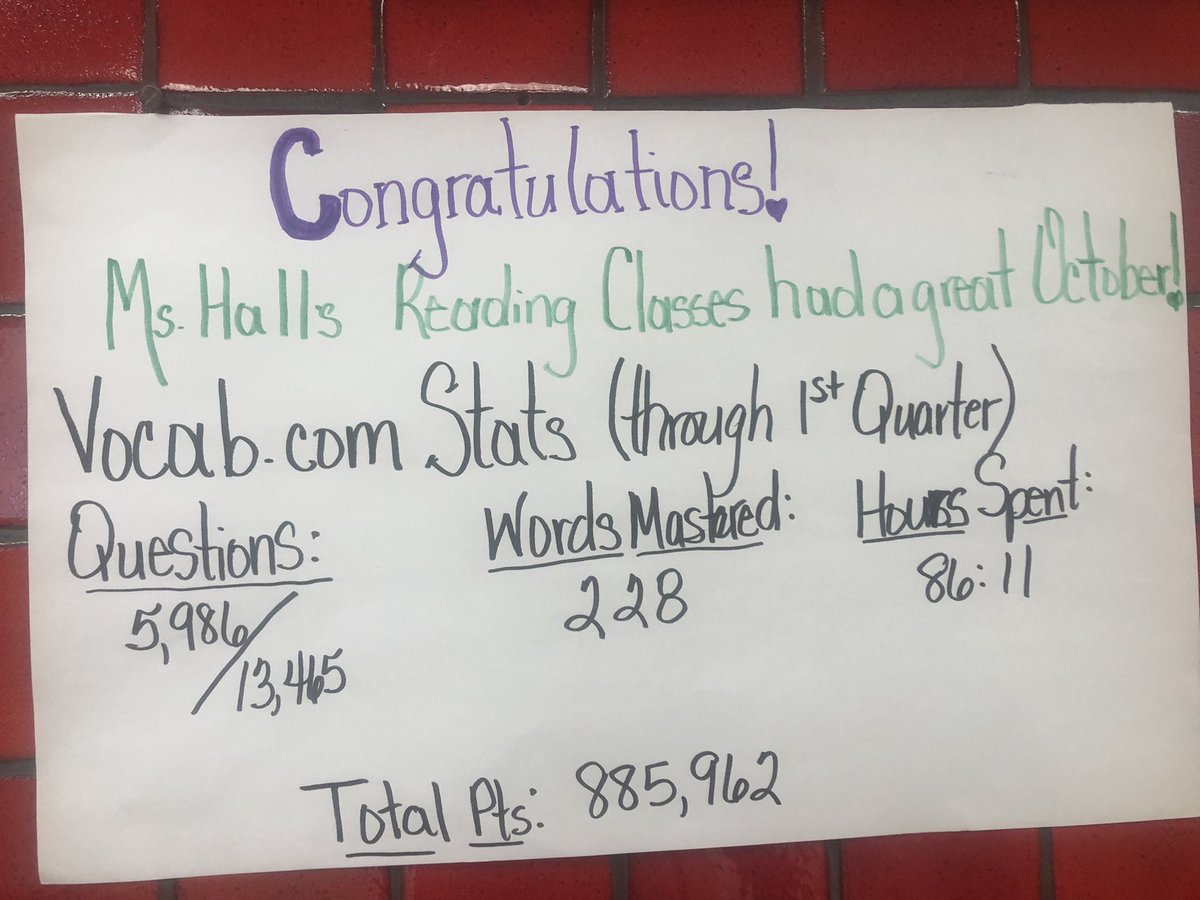 Congratulations!
Ms. Hall's Reading Classes had a great October!
Vocab.com Stats (through 1st Quarter)
Questions: Words Mastered: Hours Spent:
5,986/13,465 228 86:11
Total Pts: 885,962